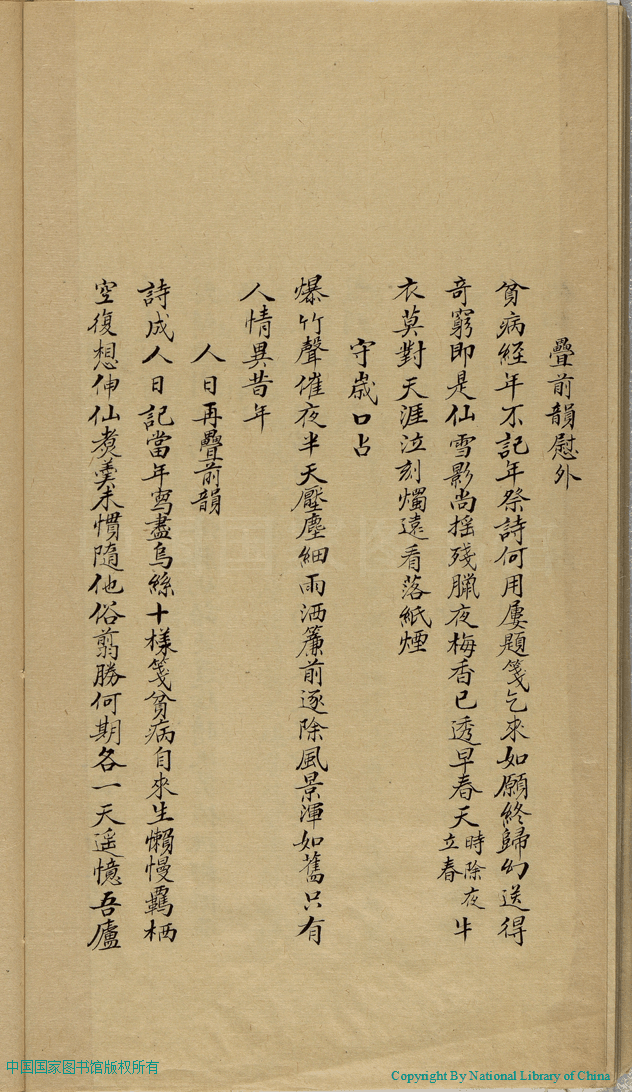 疊前韻慰外
貧病經年不記年祭詩何用屢題箋乞來如願終歸幻送得
奇窮即是仙雪影尚搖殘臘夜梅香已透早春天時除夜立春牛
衣莫對天涯泣刻燭遠看落紙煙
守歲口占
爆竹聲催夜半天壓塵細雨洒簾前逐除風景渾如舊只有
人情異昔年
人日再疊前韻
詩成人日記當年寫盡烏絲十樣箋貧病自來生懶慢羈栖
空復想伸仙煑羹未慣隨他俗翦勝何期各一天遥憶吾廬
中国国家图书馆版权所有
Copyright By National Library of China